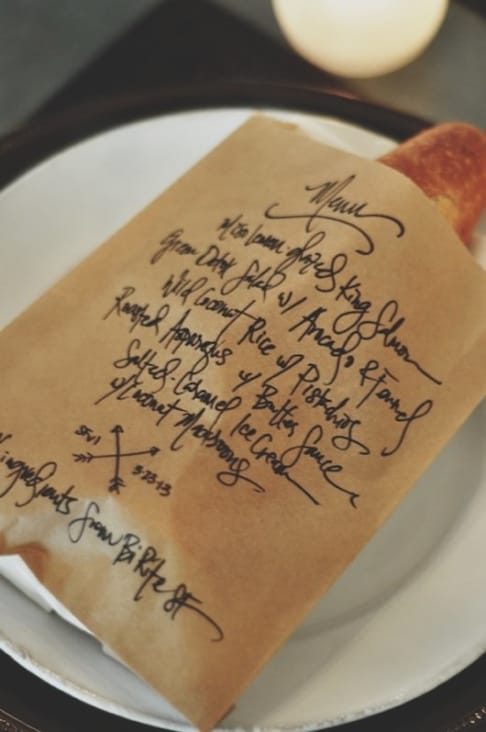 Menu
Miso Lemon glazed King Salmon
Green Salad w/ Avocado & Fennel
Wild Coconut Rice w/ Pistachios
Roasted Asparagus w/ Butter Sauce
Salted Caramel Ice Cream
w/ Coconut Macaroons
3·23·13
ingredients from BiRite SF